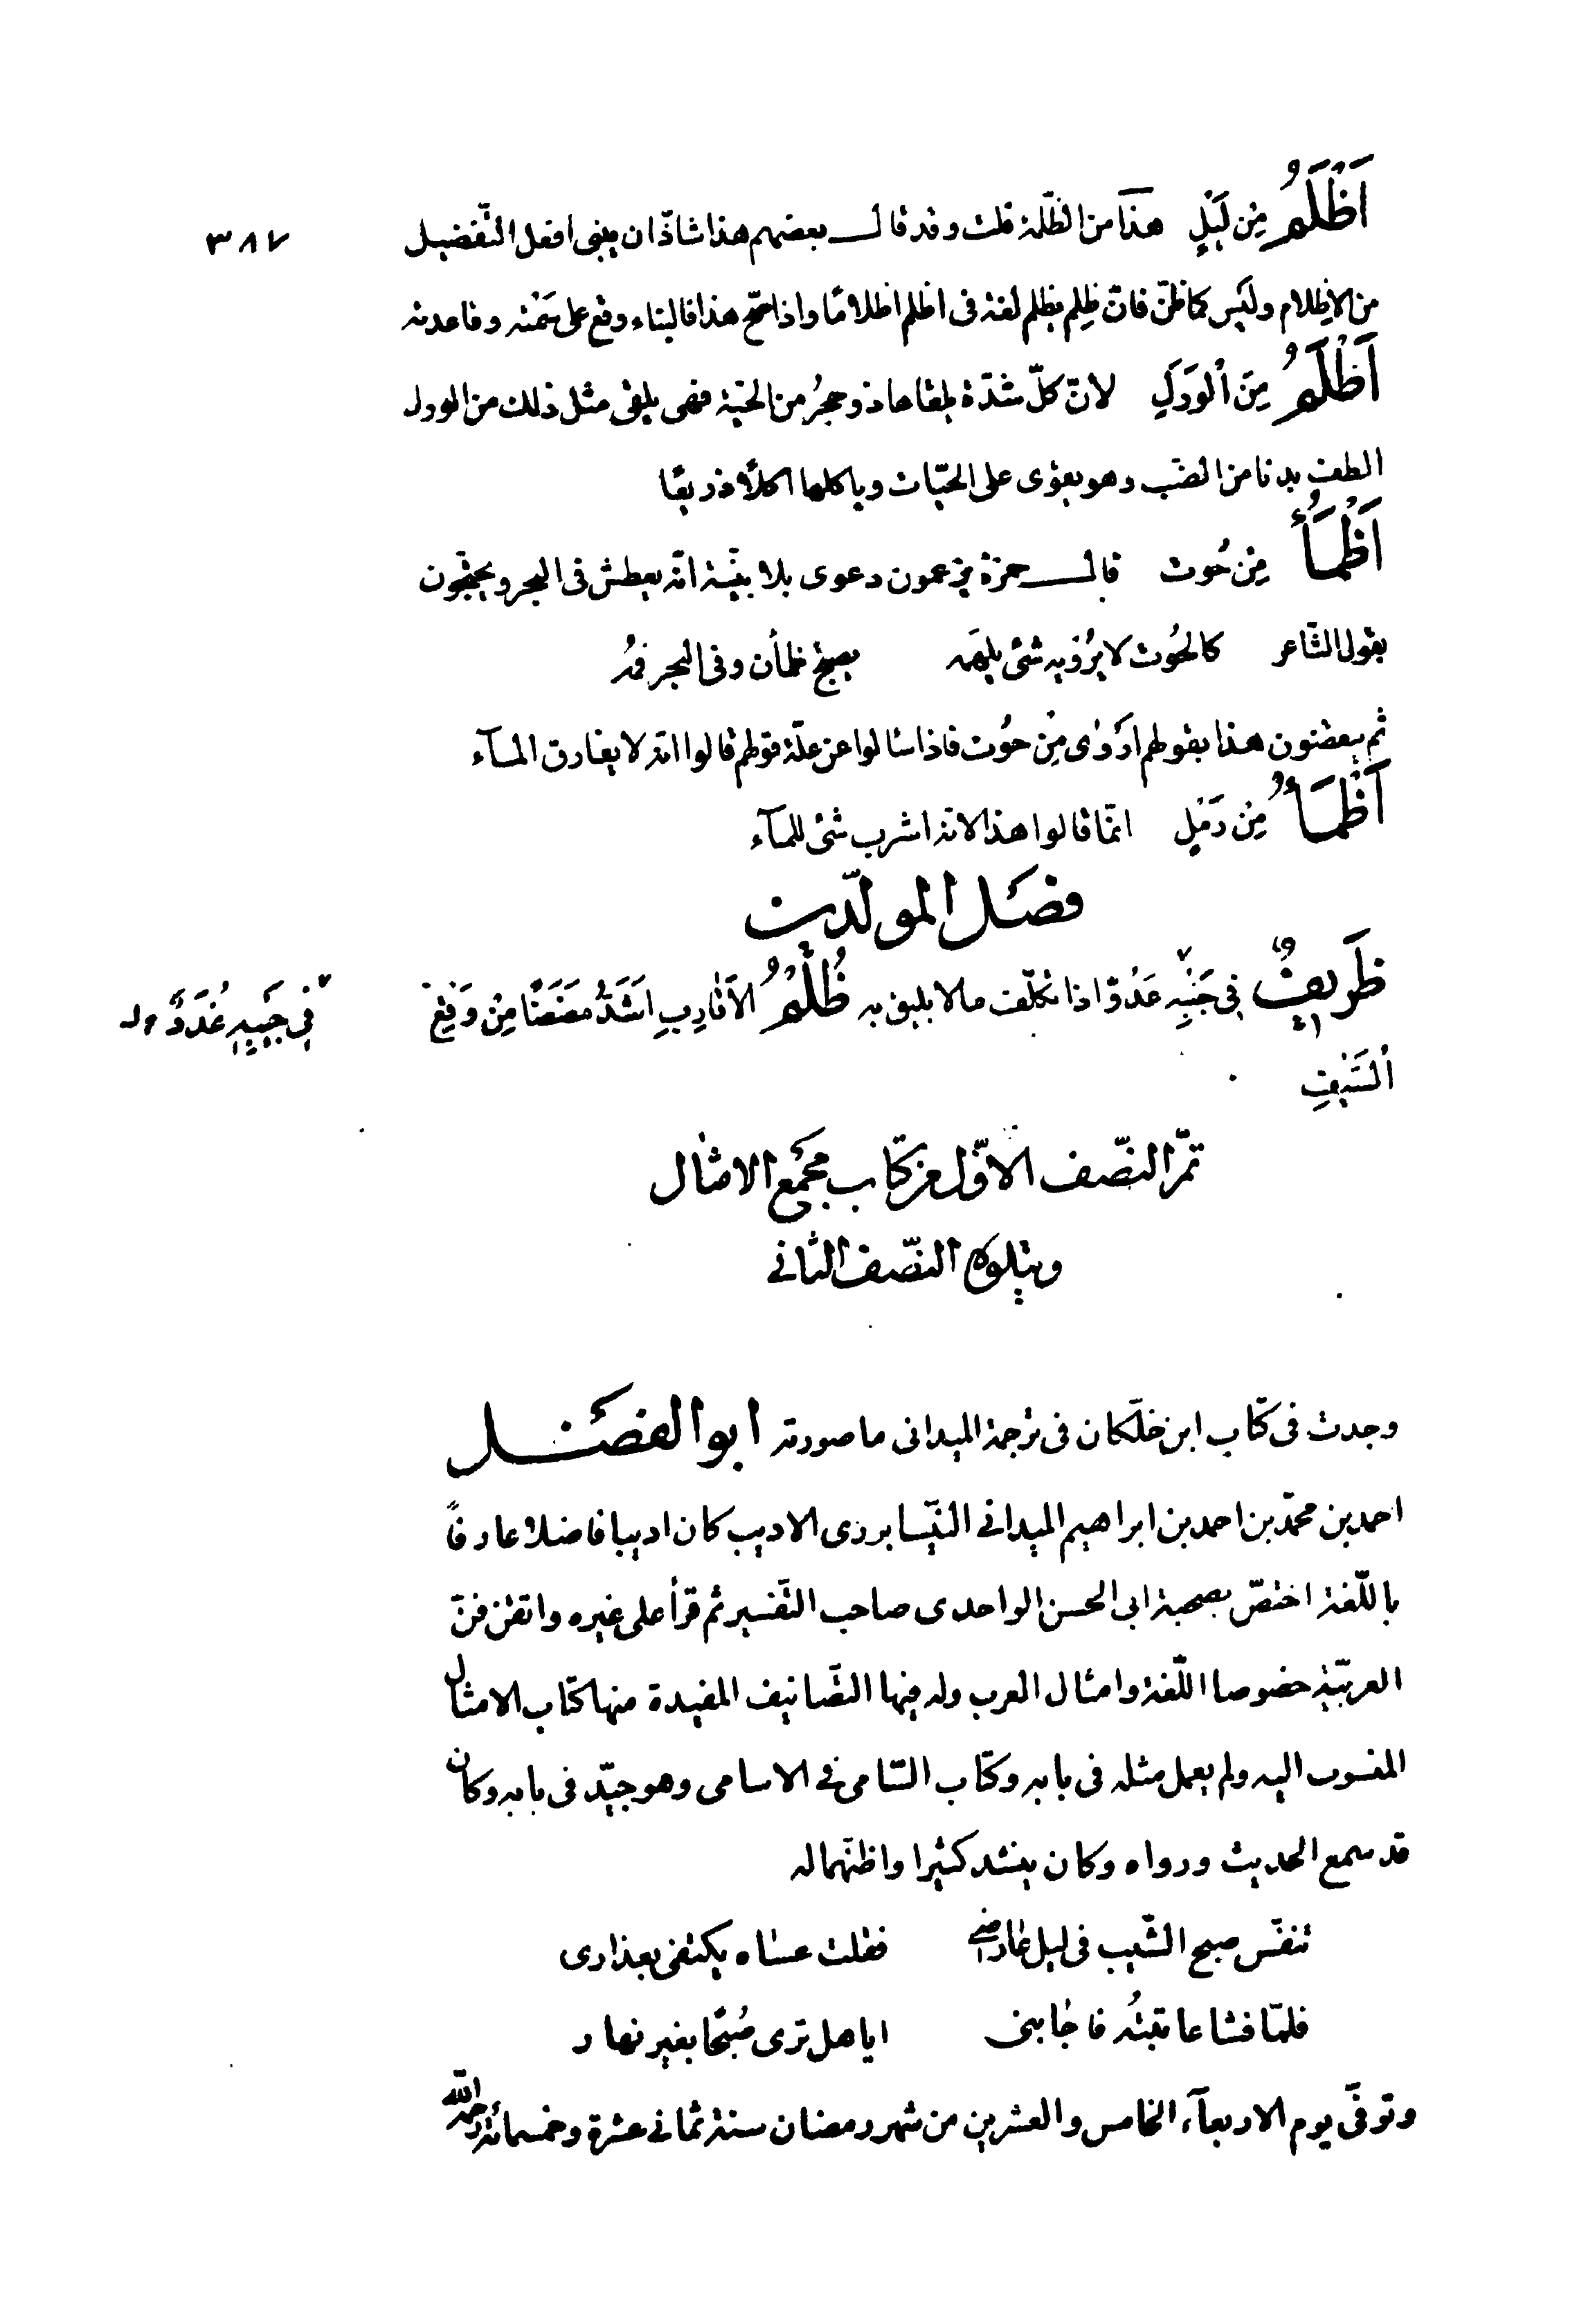 ٣٨٧
اَظْلَمُ مِن لَيْلٍ هذَا من الظّلمة قلت وقد قال بعضهم هذا شاذّ ان يبنى افعل التّفضيل
من الاِظلام وليس كما ظنّ فانّ ظَلِم يظلم لغة فى اظلم اظلامًا واذا صحّ هذا فالبناء وقع على سَمْته وقاعدته
اَظْلَمُ مِنَ ٱلوَرَلِ لانّ كلّ شدّة يلقاها ذو حجرٍ من الحيّة فهى يلقى مثل ذلك من الورل
الطف بدنا من الضّب وهو يقوى على الحيّات وياكلها اكلًا ذريعًا
اَظْمَأُ مِنْ حُوت قال حمزة يزعمون دعوى بلا بيّنة انّه يعطش فى البحر ويحتجّون
بقول الشّاعر كالحُوت لا يُرْوِيه شئ يلهمه يصبح ظمأن وفى البحر فمُه
ثم ينقضون هذا بقولهم اَرْوٰى مِنْ حوُت فاذا سالوا عن علّة قولهم قالوا انّه لا يفارق المآء
اَظْمَأُ مِنْ رَمْلٍ انّما قالوا هذا لانّه اشرب شئ للمآء
فصَل المولّدين
ظَرِيفٌ فِى جَنْبِه عَدُوّ اذا تكلّف ما لا يليق به ظُلْمُ الاَقَارِبِ اَشَدُّ مَضَضًا مِنْ وَقْعِ
فِى جَيْبِهِ غُدَدٌ
ٱلسَّيْفِ
تمّ النّصف الاوّل من كتاب مَجْمَع الامثال
ويتلوه النّصف الثانى
وجدت فى كتاب ابن خلّكان فى ترجمة الميدانى ما صورته ابو الفضَل
احمد بن محمّد بن احمد بن ابراهيم الميدانى النّيسابورى الاديب كان اديبا فاضلا عارفًا
باللّغة اختصّ بصحبة ابى الحسن الواحدى صاحب التّفسير ثم قرأ على غيره واتقن فنّ
العربيّة خصوصا اللّغة وامثال العرب وله فيها التّصانيف المفيدة منها كتاب الامثال
المنسوب اليه ولم يعمل مثله فى بابه وكتاب السّامى فى الاسامى وهو جيّد فى بابه وكان
قد سمع الحديث ورواه وكان ينشد كثيرا واظنّهما له
تنفّس صبح الشّيب فى ليل عارضى فقلت عساه يكتفى بعذارى
فلمّا فشا عاتبتُه فاجابنى ايا هل ترى صُبْحًا بغير نهار
وتوفّى يوم الاربعآء الخامس والعشرين من شهر رمضان سنة ثمانى عشرة وخمسمائة رحمه اللّه